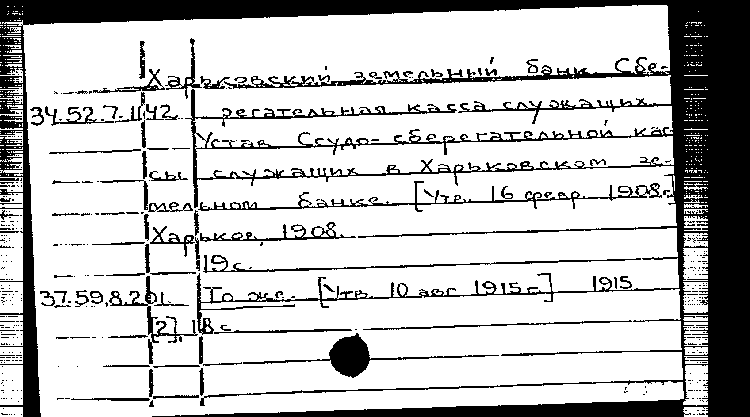 Харьковский земельный банк. Сбе-
34.52.7.1142. регательная касса служащих.
Устав Ссудо-сберегательной кас-
сы служащих в Харьковском зе-
мельном банке. [Утв. 16 февр. 1908г.]
Харьков, 1908.
19 с.
37.59.8.201. То же. [Утв. 10 авг 1915 г.] 1915.
[2], 18 с.